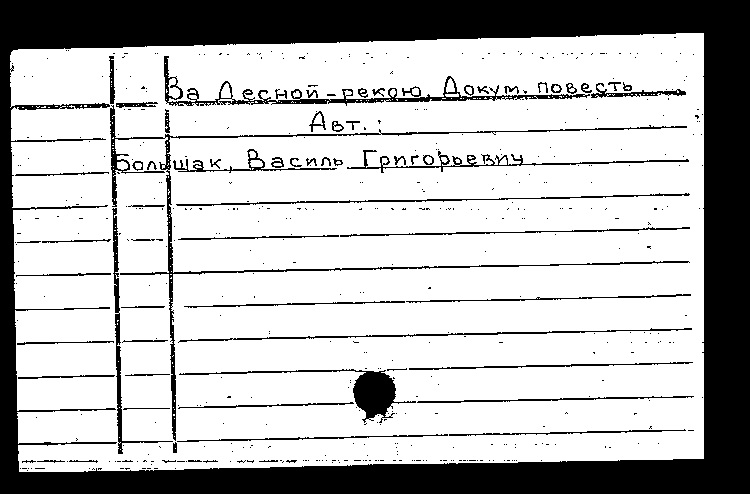 За Десной-рекою. Докум. повесть.
Авт.:
Большак, Василь Григорьевич.